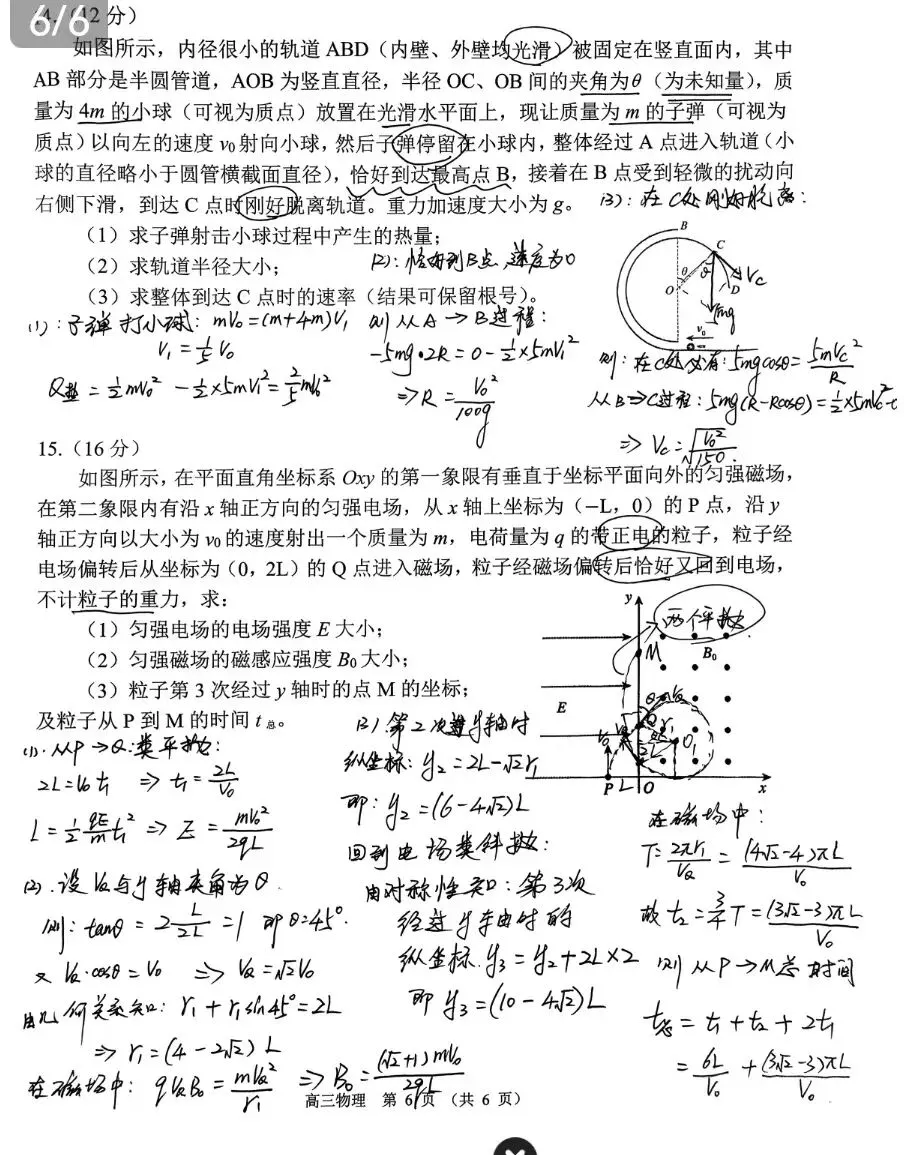 6/6
14.（12分）
如图所示，内径很小的轨道 ABD（内壁、外壁均光滑）被固定在竖直面内，其中
AB 部分是半圆管道，AOB 为竖直直径，半径 OC、OB 间的夹角为θ（为未知量），质
量为 4m 的小球（可视为质点）放置在光滑水平面上，现让质量为 m 的子弹（可视为
质点）以向左的速度 v₀ 射向小球，然后子弹停留在小球内，整体经过 A 点进入轨道（小
球的直径略小于圆管横截面直径），恰好到达最高点 B，接着在 B 点受到轻微的扰动向
右侧下滑，到达 C 点时刚好脱离轨道。重力加速度大小为 g。
(3)：在C处刚好脱离：
（1）求子弹射击小球过程中产生的热量；
（2）求轨道半径大小；
(2)：恰好到B点，速度为0
（3）求整体到达 C 点时的速率（结果可保留根号）。
B
C
θ
θ
O
D
Vc
5mg
v₀
(1)：子弹打小球：mV₀=(m+4m)V₁
V₁=1/5V₀
Q热=1/2mV₀²-1/2×5mV₁²=2/5mV₀²
则从A→B过程：
-5mg·2R=0-1/2×5mV₁²
⇒R=V₀²/100g
则：在C处必有：5mgcosθ=5mVc²/R
从B⇒C过程：5mg(R-Rcosθ)=1/2×5mVc²-0
⇒Vc=√(V₀²/150)
15.（16分）
如图所示，在平面直角坐标系 Oxy 的第一象限有垂直于坐标平面向外的匀强磁场，
在第二象限内有沿 x 轴正方向的匀强电场，从 x 轴上坐标为（−L，0）的 P 点，沿 y
轴正方向以大小为 v₀ 的速度射出一个质量为 m，电荷量为 q 的带正电的粒子，粒子经
电场偏转后从坐标为（0，2L）的 Q 点进入磁场，粒子经磁场偏转后恰好又回到电场，
不计粒子的重力，求：
（1）匀强电场的电场强度 E 大小；
（2）匀强磁场的磁感应强度 B₀ 大小；
（3）粒子第 3 次经过 y 轴时的点 M 的坐标；
及粒子从 P 到 M 的时间 t总。
y
两个平抛
M
B₀
E
Q
r₁
O₁
2L
P
L
O
x
(1)·从P→Q：类平抛：
2L=V₀t₁ ⇒ t₁=2L/V₀
L=1/2 qE/m t₁² ⇒ E=mV₀²/2qL
(2)·设VQ与y轴夹角为θ
则：tanθ=2 L/2L=1 即θ=45°.
又VQ·cosθ=V₀ ⇒ VQ=√2V₀
由几何关系知：r₁+r₁sin45°=2L
⇒r₁=(4-2√2)L
在磁场中：qVQB₀=mVQ²/r₁ ⇒B₀=(√2+1)mV₀/2qL
(3)第2次过y轴时
纵坐标：y₂=2L-√2r₁
即：y₂=(6-4√2)L
回到电场类斜抛：
由对称性知：第3次
经过y轴时的
纵坐标 y₃=y₂+2L×2
即y₃=(10-4√2)L
在磁场中：
T=2πr₁/VQ=(4√2-4)πL/V₀
故t₂=3/4T=(3√2-3)πL/V₀
则从P→M总时间
t总=t₁+t₂+2t₁
=6L/V₀+(3√2-3)πL/V₀
高三物理 第 6 页 （共 6 页）